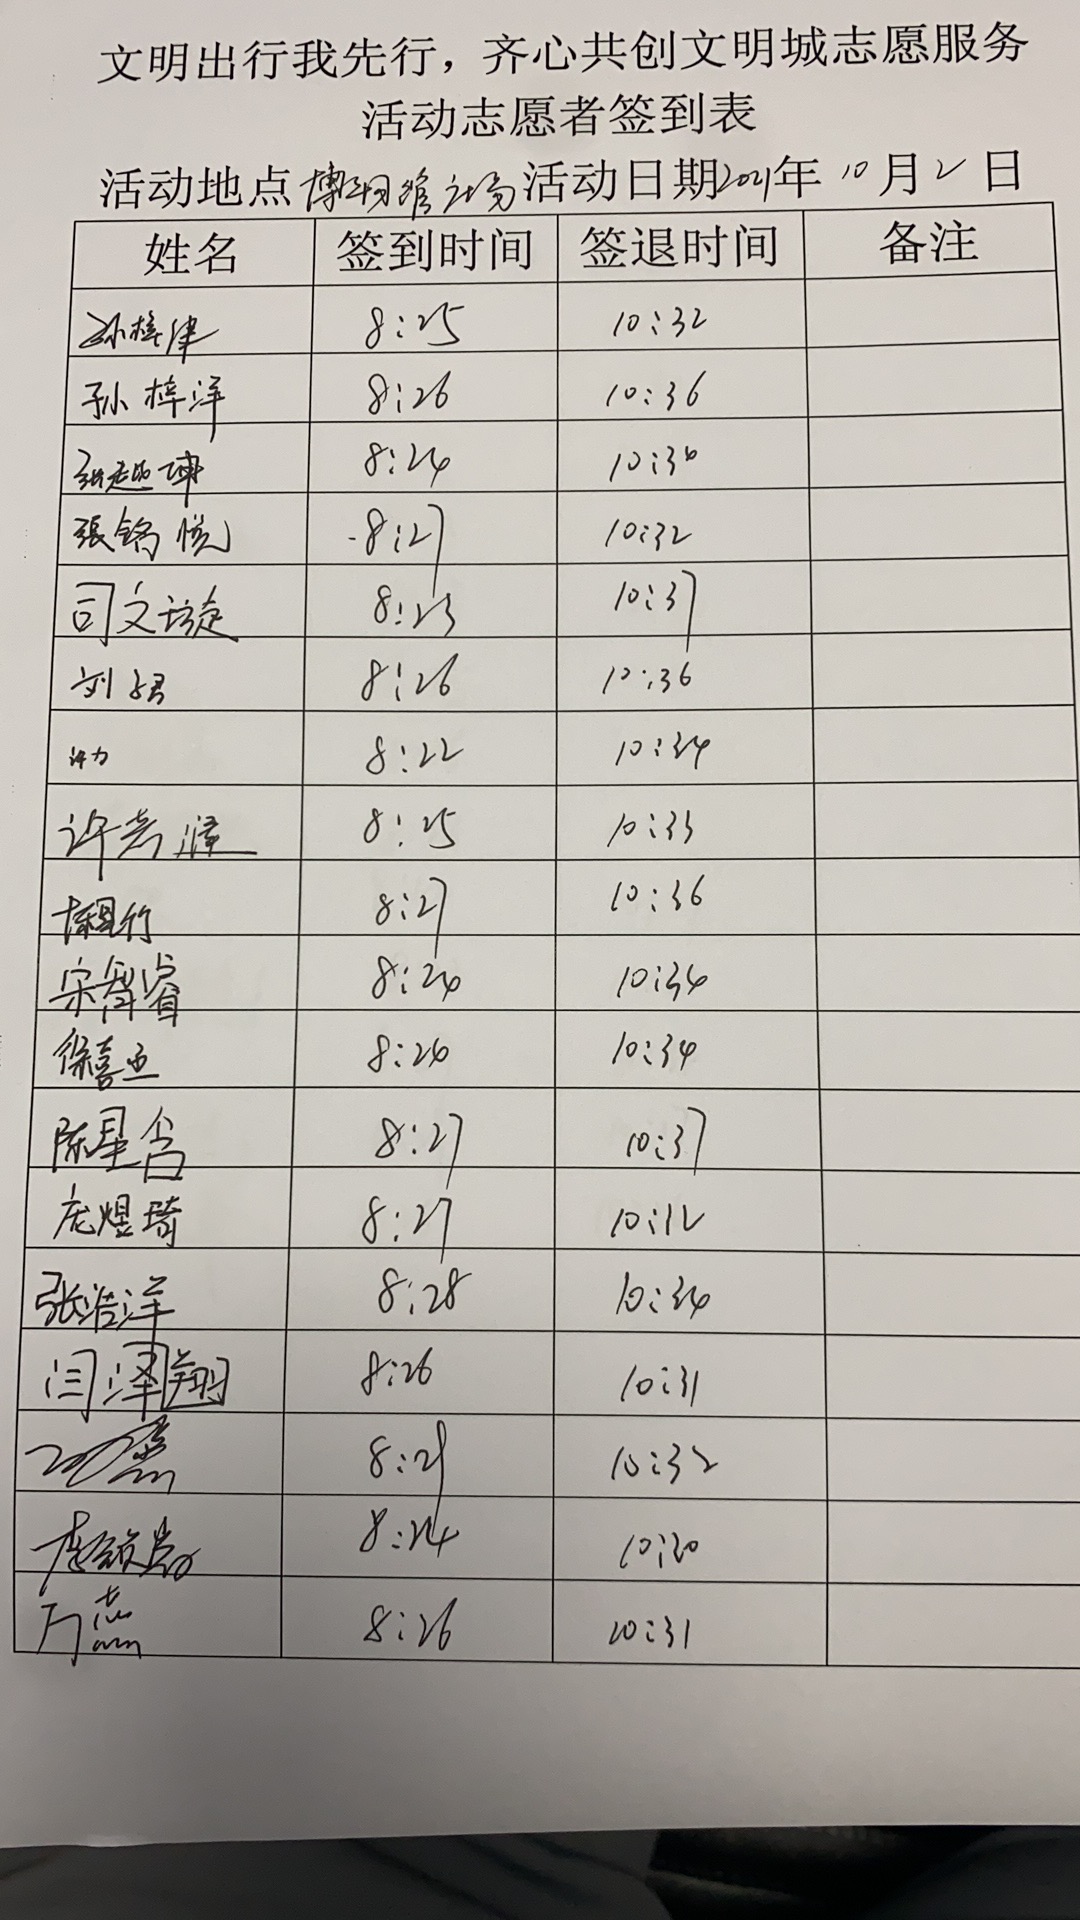 文明出行我先行，齐心共创文明城志愿服务
活动志愿者签到表
活动地点 活动日期2021年10月2日
姓名 签到时间 签退时间 备注
孙梓津 8:25 10:32
孙梓洋 8:26 10:36
8:24 10:30
張铭悦 8:27 10:32
司文 8:23 10:37
刘 8:26 10:36
许力 8:22 10:34
许 8:25 10:33
8:27 10:36
宋睿 8:24 10:34
徐喜 8:26 10:34
陈星含 8:27 10:37
庞煜琦 8:27 10:12
张浩洋 8:28 10:34
闫泽翔 8:26 10:31
8:29 10:32
8:24 10:30
8:26 10:31